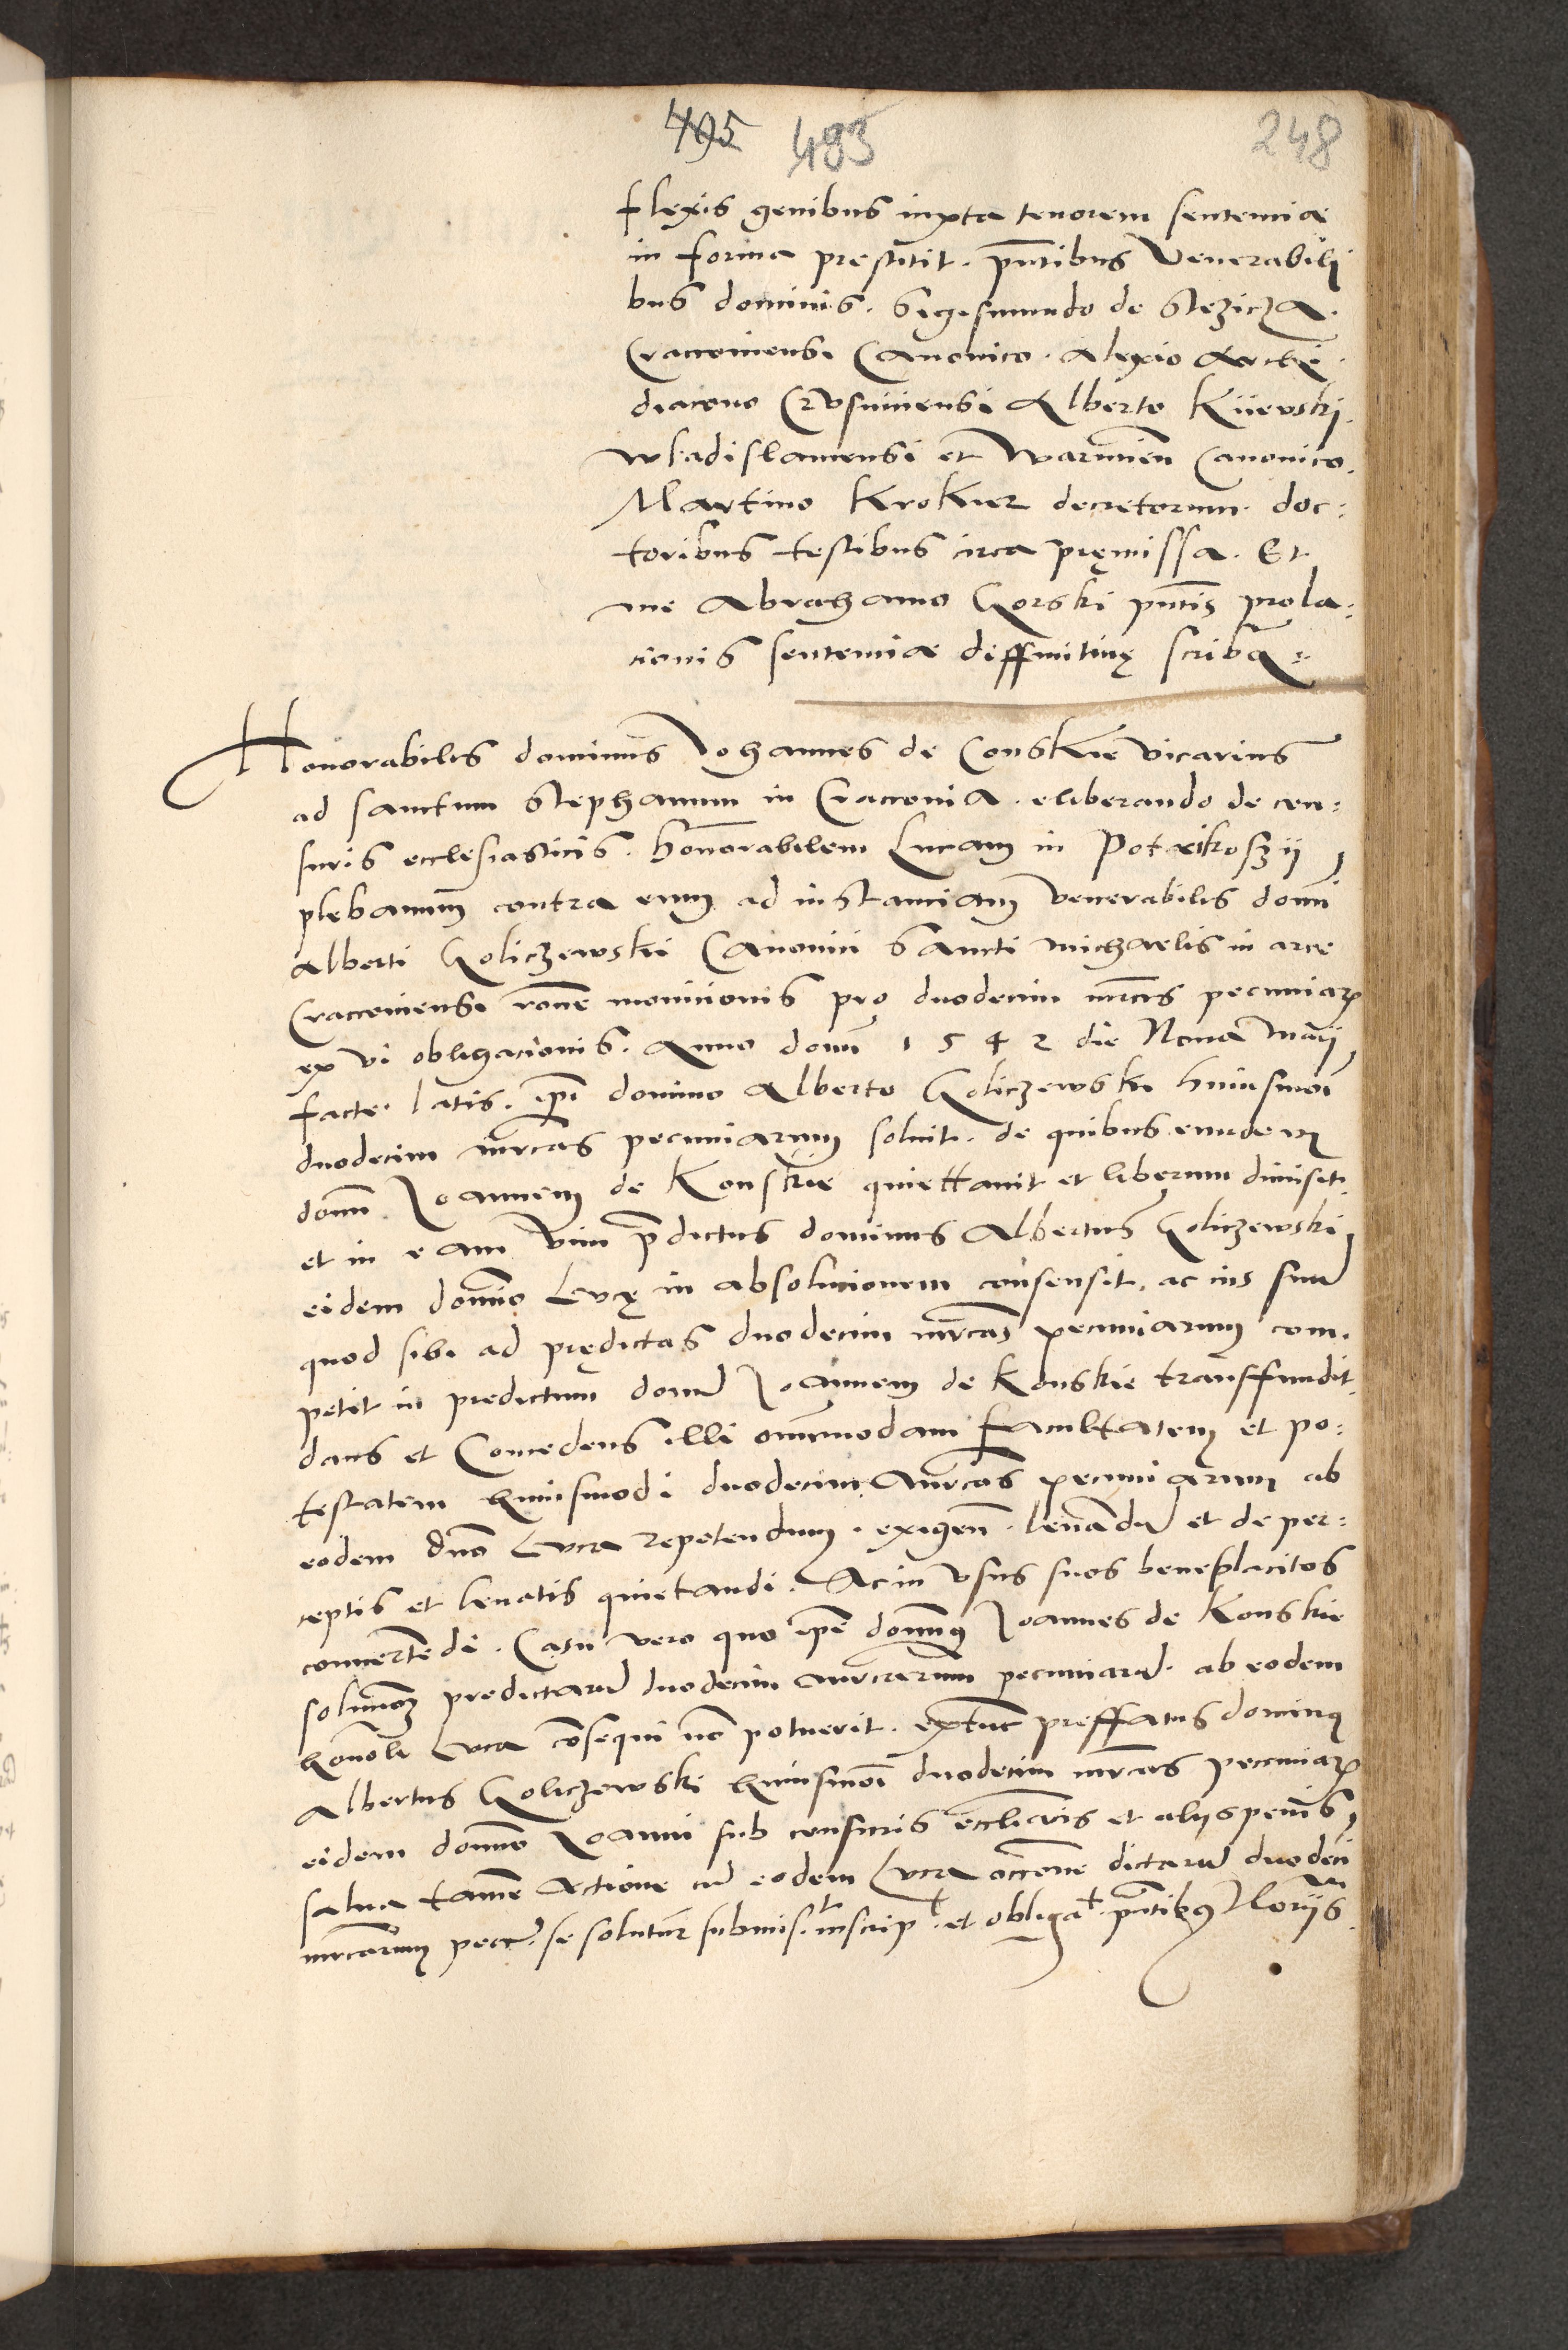 495 483 248
flexis genibus iuxta tenorem sentenciae
in forma prestitit. pntibus Venerabili
bus dominis. Sigismundo de Stezicza.
Cracoviensi Canonico. Alexio Archi
diacono Crusviciensi Alberto Kijewski.
wladislaviensi et Warmien Canonico.
Martino Krokier decretorum doc:
toribus testibus circa pręmissa. Et
me Abrahamo Gorski pntis prola:
cionis sentenciae diffinitivę scriba:
Honorabilis dominus Johannes de Conskie vicarius
ad sanctum Stephanum in Cracovia. eliberando de cen:
suris ecclesiasticis. honorabilem Lucam in
plebanum contra eum ad instanciam Venerabilis domi
Alberti Goliczewski Canonici Sancti Michaelis in arce
Cracoviensi rone monicionis pro duodecim mrcis pecuniar
ex vi obligacionis. Anno domi 1542 die Nona Maij
facte. latis. ipi domino Alberto Goliczewski huiusmoi
duodecim mrcas pecuniarum solvit. de quibus eundem
domi Joannem de Konskie quiettavit et liberum dimisit.
et in eam vim pdictus dominus Albertus Goliczewski
eidem domino Lucę in absolucionem consensit. ac ius suu
quod sibi ad prędictas duodecim mrcas pecuniarum com.
petit in predictum domi Joannem de Konskie transffundit.
dans et Concedens illi omnimodam facultatem et po:
testatem huiusmodi duodecim mrcas pecuniarum ab
eodem dno Luca repetendum. exigen. levandu et de per:
ceptis et levatis quietandi. Ac in usus suos beneplacitos
convertedi. Casu vero quo ipe domnus Joannes de Konskie
soluoem predictaru duodecim mrcarum pecuniaru. ab eodem
honoli Luca cosequi no potuerit. extunc preffatus dominus
Albertus Goliczewski huiusmoi duodecim mrcas pecuniar
eidem domno Joanni sub censuris eccliaris et aliis penis,
salva tame actione cu eodem Luca occone dictaru duodeci
mrcarum pecu. se soluturu submis. inscrip. et obliga. pntibus Noriis.